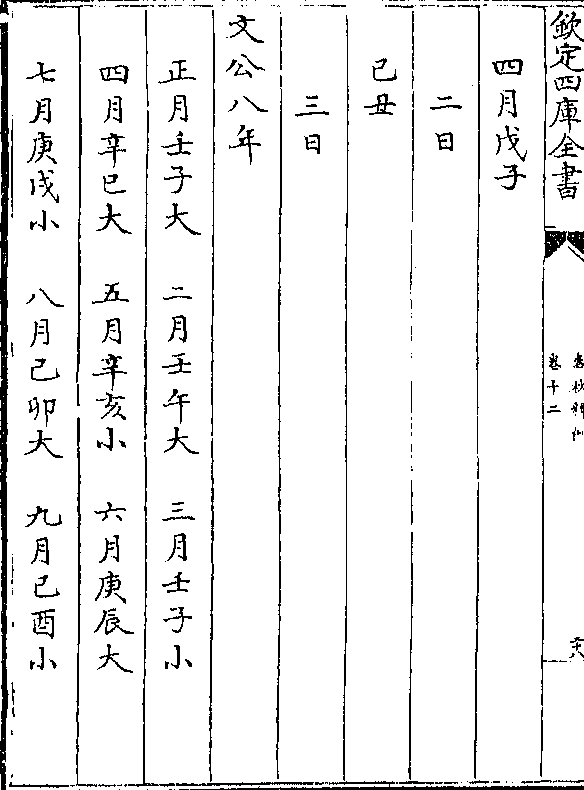 欽定四庫全書
春秋釋例
卷十二
四月戊子
二日
己丑
三日
文公八年
正月壬子大　二月壬午大　三月壬子小
四月辛巳大　五月辛亥小　六月庚辰大
七月庚戌小　八月己卯大　九月己酉小